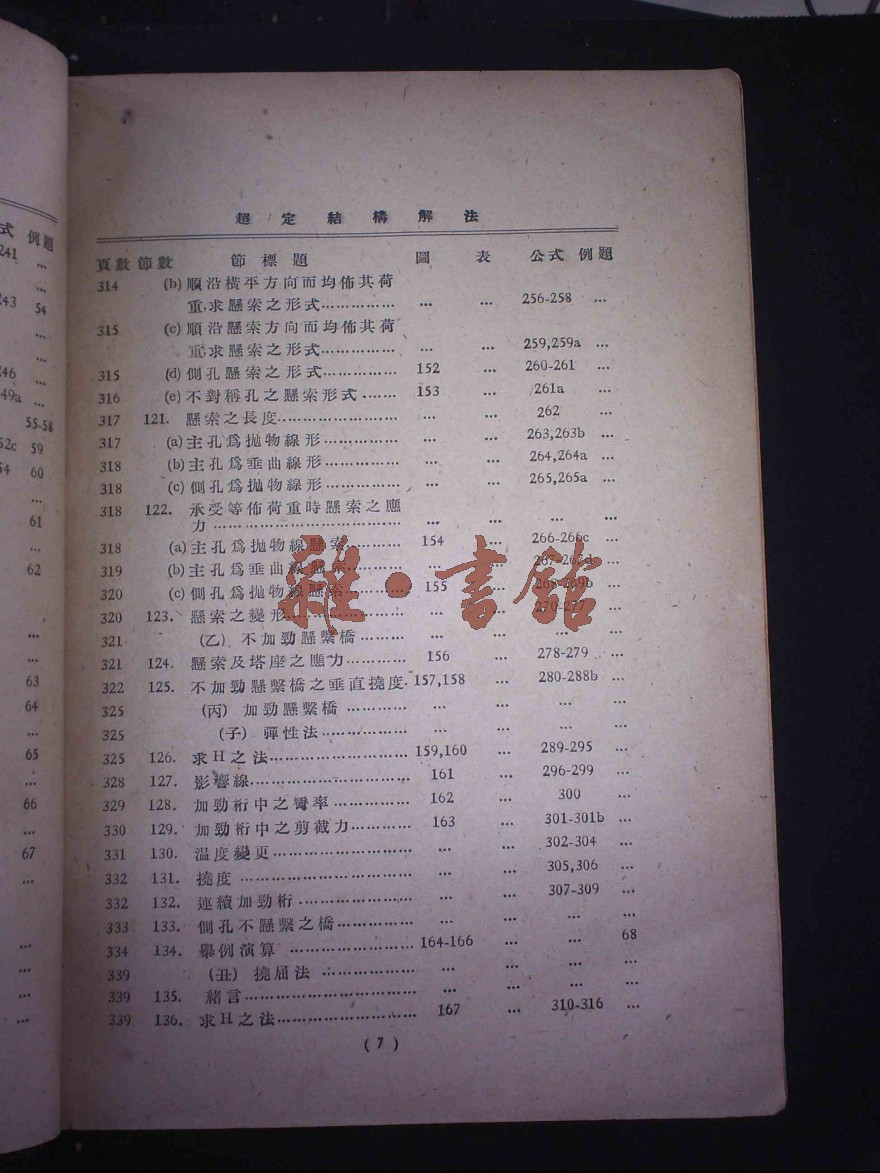 式 例題
241 ...
...
243 54
...
246 ...
249a ...
55-58
52c 59
54 60
...
61
...
62
...
...
63
64
...
65
...
66
...
67
...
...
...
...
超定結構解法
頁數 節數 節標題 圖 表 公式 例題
314 (b)順沿橫平方向而均佈其荷
重,求懸索之形式…………… ... ... 256-258 ...
315 (c)順沿懸索方向而均佈其荷
重,求懸索之形式…………… ... ... 259,259a ...
315 (d)側孔懸索之形式…………… 152 ... 260-261 ...
316 (e)不對稱孔之懸索形式……… 153 ... 261a ...
317 121. 懸索之長度…………………… ... ... 262 ...
317 (a)主孔爲拋物線形…………… ... ... 263,263b ...
318 (b)主孔爲垂曲線形…………… ... ... 264,264a ...
318 (c)側孔爲拋物線形…………… ... ... 265,265a ...
318 122. 承受等佈荷重時懸索之應
力………………………………… ... ... ... ...
318 (a)主孔爲拋物線懸索………… 154 ... 266-266c ...
319 (b)主孔爲垂曲線懸索………… ... ... 267-267d ...
320 (c)側孔爲拋物線懸索………… 155 ... 268-269b ...
320 123. 懸索之變形…………………… ... ... 270-277 ...
321 (乙) 不加勁懸繫橋……… ... ... ... ...
321 124. 懸索及塔座之應力………… 156 ... 278-279 ...
322 125. 不加勁懸繫橋之垂直撓度· 157,158 ... 280-288b ...
325 (丙) 加勁懸繫橋 ………… ... ... ... ...
325 (子) 彈性法…………… ... ... ... ...
325 126. 求H之法……………………… 159,160 ... 289-295 ...
328 127. 影響線………………………… 161 ... 296-299 ...
329 128. 加勁桁中之彎率…………… 162 ... 300 ...
330 129. 加勁桁中之剪截力………… 163 ... 301-301b ...
331 130. 温度變更……………………… ... ... 302-304 ...
332 131. 撓度 ………………………… ... ... 305,306 ...
332 132. 連續加勁桁………………… ... ... 307-309 ...
333 133. 側孔不懸繫之橋…………… ... ... ... ...
334 134. 舉例演算 ………………… 164-166 ... ... 68
339 (丑) 撓屈法 …………… ... ... ... ...
339 135. 緒言………………………… ... ... ... ...
339 136. 求H之法……………………… 167 ... 310-316 ...
(7)
雜·書館